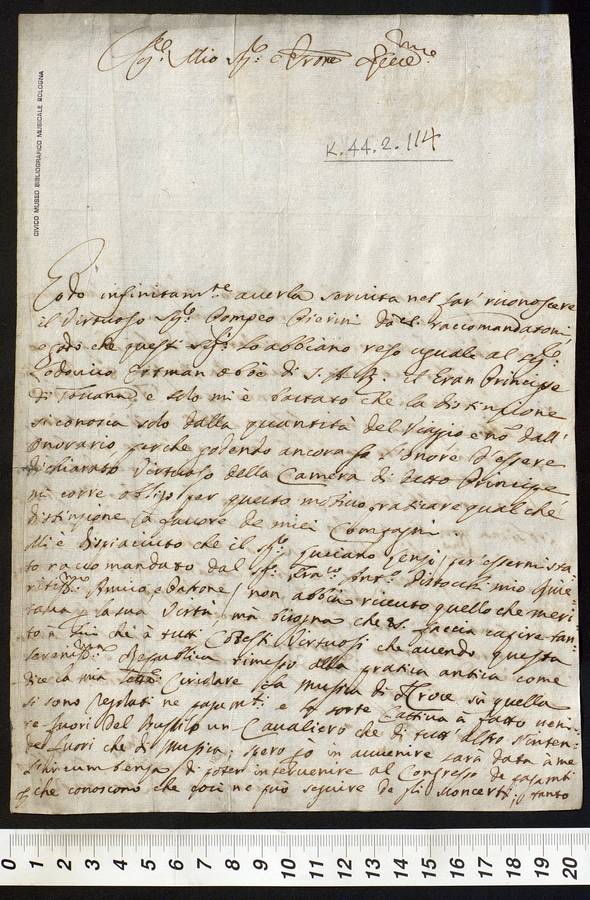 Sig.re Mio Sig.re e Prone
CIVICO MUSEO BIBLIOGRAFICO MUSICALE BOLOGNA
K.44.2.114
Godo infinitam.te averla servita nel far riconoscere
il Virtuoso Sig.r Pompeo Pierini da
e godo che questi Sig.ri lo abbiano reso uguale al Sig.r
Lodovico Ertman oboè di S. A. R. il Gran Principe
di Toscana, e solo mi è bastato che la distinzione
si conosca solo dalla quantità del Viaggio e nõ dall'
Onorario perche godendo ancora Io l'onore d'essere
dichiarato Virtuoso della Camera di detto Principe
mi corre obligo per questo motivo praticare qualche
distinzione a favore de miei Compagni
Mi è dispiaciuto che il Sig.r Luciano per essermi sta
to raccomandato dal Sig.r Fran.co Ant.o Pistocchi mio
Amico e Padrone non abbia ricevuto quello che meri
tava la sua Virtù, mà bisogna che faccia capire tan
to à lui che à tutti Cotesti Virtuosi che avendo questa
Seren.ma Republica rimesso alla pratica antica come
dice la sua Circolare la Musica di Croce sù quella
si sono regolati ne pagam.ti e la sorte Cattiva à fatto veni
re fuori del Bussolo un Cavaliero che di tutt'altro s'inten
de fuori che di Musica; spero in avvenire sarà data à me
l'incumbenza di poter intervenire al Congresso de pagam.ti
che conoscono che così ne può seguire de gli sconcerti, tanto
0 1 2 3 4 5 6 7 8 9 10 11 12 13 14 15 16 17 18 19 20